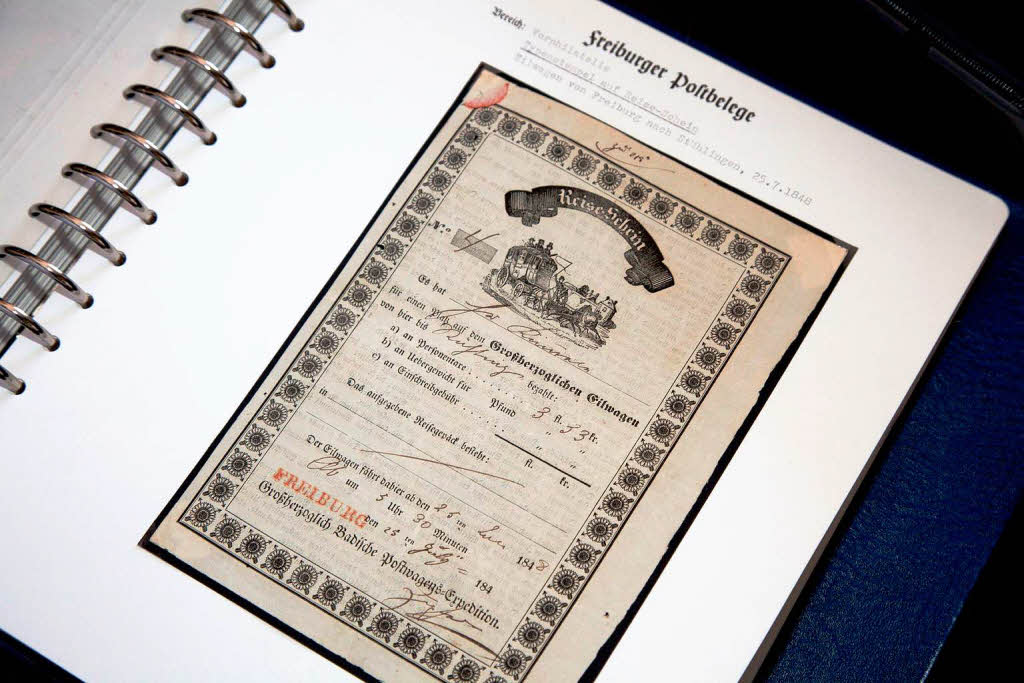 Freiburger Postbelege
Bereich: Vorphilatelie
Typenstempel auf Reise-Schein
Eilwagen von Freiburg nach Stühlingen, 25.7.1848
Reise-Schein
No 4
Es hat
für einen Platz auf dem Großherzoglichen Eilwagen
von hier bis bezahlt:
a) an Personentaxe . . . . . 3 fl. 33 kr.
b) an Uebergewicht für Pfund " "
c) an Einschreibgebühr . . . . . " "
fl. kr.
Das aufgegebene Reisegepäck besteht:
in
Der Eilwagen fährt dahier ab den 25 ten 1848
um 5 Uhr 30 Minuten
FREIBURG den 25 ten July 184
Großherzoglich Badische Postwagens-Expedition.